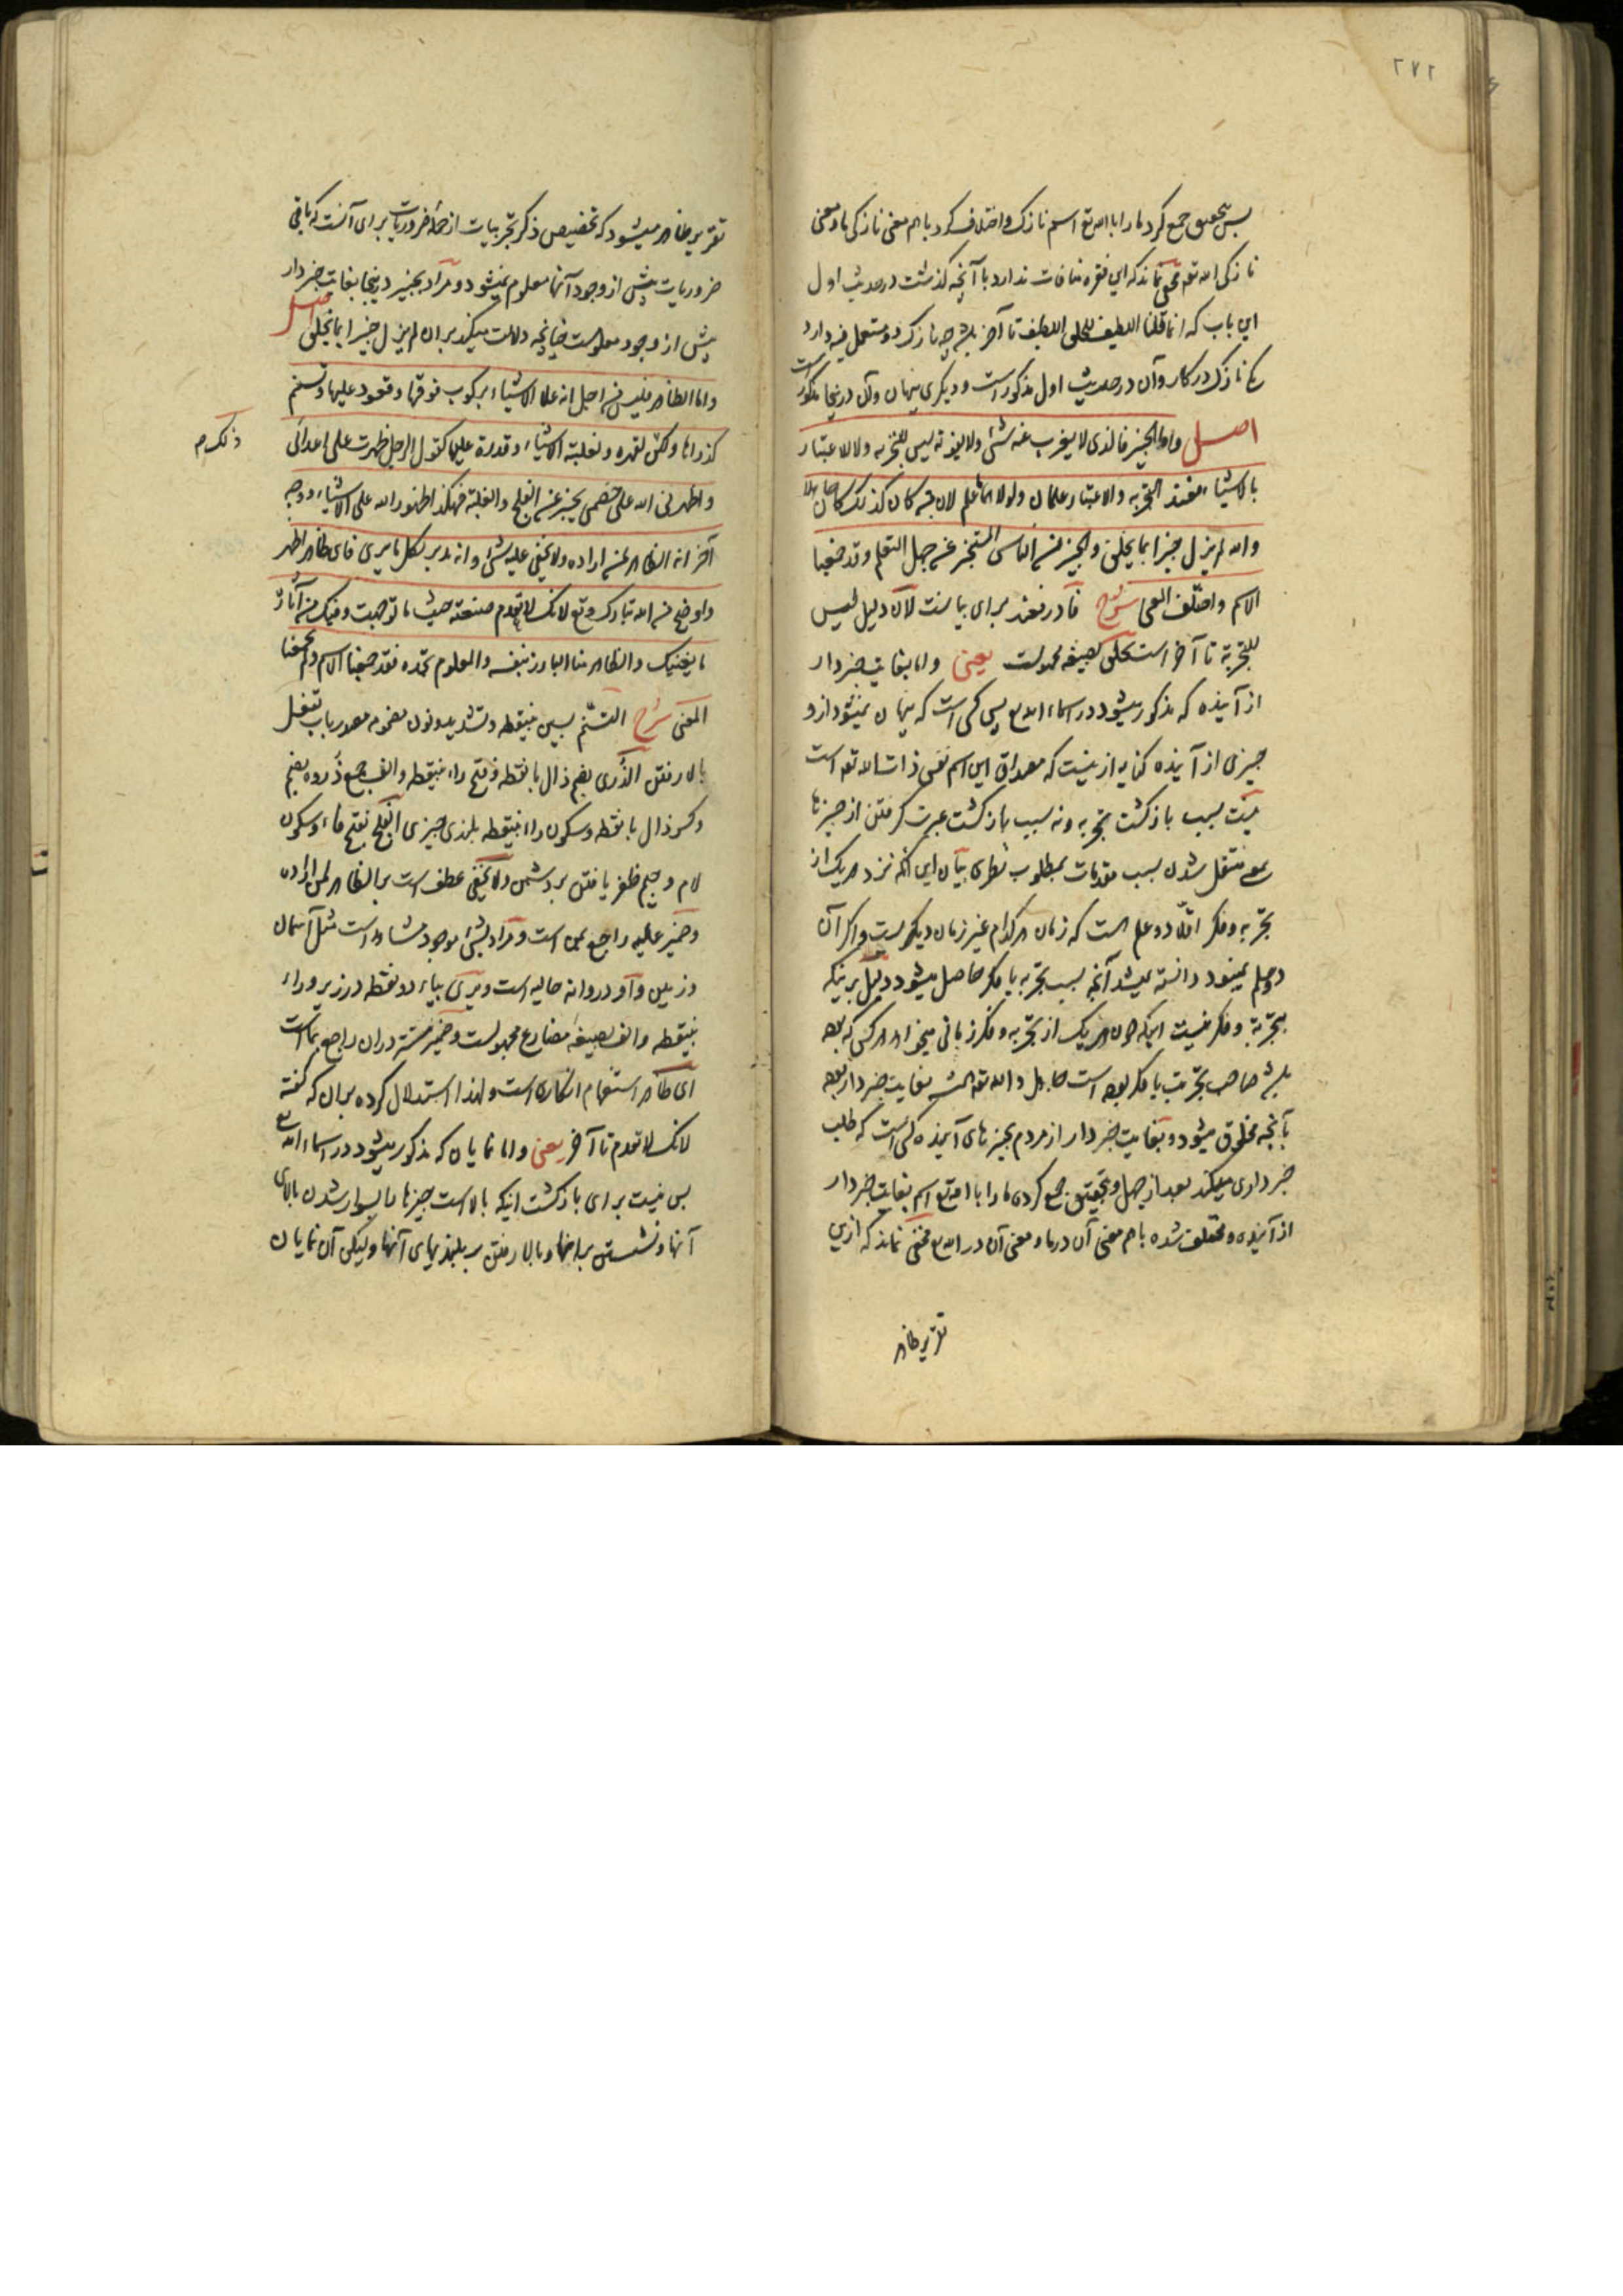 ۲۷۲
پس بتحقیق جمع کرد ما را با الله تع اسم نازک و اختلاف کرد باهم معنی نازکی ما و معنی
نازکی الله تع مخفی نماند که این فقره منافات ندارد با آنچه گذشت در حدیث اول
این باب که انما قلنا اللطیف للخلق اللطیف تا آخر چه نازک دو مستعمل فیه دارد
یکی نازک در کار و آن در حدیث اول مذکور است و دیگری پنهان و آن در اینجا مذکور است
اصل واما الخبیر فالذی لا یعزب عنه شئ ولا یفوته لیس للتجربه ولا للاعتبار
بالاشیاء فعند التجربه والاعتبار علمان ولولا هما ما علم لان من کان کذلک کان جاهلا
والله لم یزل خبیرا بما یخلق والخبیر من الناس المستخبر عن جهل المتعلم وقد جمعنا
الاسم واختلف المعنی شرح فا در فعند برای بیانست لان دلیل لیس
للتجربة تا آخر است یخلق بصیغه مجهولست یعنی واما بغایت خبردار
از آینده که مذکور میشود در اسماء الله تع پس کسی است که پنهان نمیشود از و
چیزی از آینده کنایه ازینست که مصداق این اسم نفس ذات الله تع است
نیست بسبب بازگشت تجربه و نه سبب بازگشت عبرت گرفتن از چیزها
یعنی منتقل شدن بسبب مقدمات بمطلوب نظری بیان این آنکه نزد هر یک از
تجربه و فکر اقلّا دو علم است که زمان هر کدام غیر زمان دیگرست و اگر آن
دو علم نمیبود دانسته نمیشد آنچه بسبب تجربه یا فکر حاصل میشود دلیل برینکه
بتجربة و فکر نیست اینکه چون هر یک از تجربه و فکر زمانی میخواهد هر کس که بوده
باشد صاحب تجربت یا فکر بوده است جاهل و الله تع همیشه بغایت خبردار بوده
بآنچه مخلوق میشود و بغایت خبردار از مردم بچیزهای آینده کسی است که طلب
خبرداری میکند بعد از جهل و بتحقیق جمع کردی ما را با الله تع اسم بغایت خبردار
از آینده و مختلف شده باهم معنی آن در ما و معنی آن در الله تع مخفی نماند که ازین
تقریر ظاهر
تقریر ظاهر میشود که تخصیص ذکر تجربیات از جملهٔ ضروریات برای آنست که باقی
ضروریات پیش از وجود آنها معلوم نمیشود و مراد بخبیر درینجا بغایت خبردار
پیش از وجود معلومست چنانچه دلالت میکند بر آن لم یزل خبیرا بما یخلق اصل
واما الظاهر فلیس من اجل انه علا الاشیاء برکوب فوقها وقعود علیها وتسنم
لذراها ولکن لقهره ولغلبته الاشیاء وقدرة علیها کقول الرجل ظهرت علی اعدائی
ذلک م
واظهرنی الله علی خصمی یخبر عن الفلج والغلبة فهکذا ظهور الله علی الاشیاء ووجه
آخر انه الظاهر لمن اراده ولا یخفی علیه شئ وانه مدبر لکل ما یری فای ظاهر اظهر
واوضح من الله تبارک وتع لانک لا تعدم صنعته حیث ما توجهت وفیک من آثاره
ما یغنیک والظاهر منا البارز بنفسه والمعلوم بحده فقد جمعنا الاسم ولم یجمعنا
المعنی شرح التسنّم بسین بینقطه و تشدید و نون مضموم مصدر باب تفعل
بالا رفتن الذُّری بضم ذال با نقطه و فتح راء بینقطه و الف جمع ذُروه بضم
و کسر ذال با نقطه و سکون راء بینقطه بلندی چیزی الفلج بفتح فاء و سکون
لام و جیم ظفر یافتن بر دشمن ولا یخفی عطف است بر الظاهر لمن اراده
و ضمیر علیه راجع بمن است و مراد بشئ موجود مشاهد است مثل آسمان
و زمین و واو در وانه حالیه است و یری بیاء دو نقطه در زیر و راء
بینقطه و الف بصیغهٔ مضارع مجهولست و ضمیر مستتر در آن راجع بما است
ای ظاهر استفهام انکاری است و لهذا استدلال کرده بر آن که گفته
لانک لا تعدم تا آخر یعنی و اما نمایان که مذکور میشود در اسماء الله تع
پس نیست برای بازگشت اینکه بالا است چیزها را بسوار شدن بالای
آنها و نشستن بر آنها و بالا رفتن بر بلندیهای آنها و لیکن آن نمایان